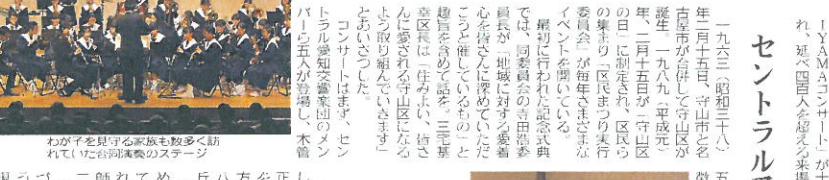 IYAMAコンサート」が十
れ、延べ四百人を超える来場
セントラル
一九六三(昭和三十八)
年二月十五日、守山市と名
古屋市が合併して守山区が
誕生。一九八九(平成元)
年、二月十五日が「守山区
の日」に制定され、区民ら
の集まり「区民まつり実行
委員会」が毎年さまざまな
イベントを開いている。
最初に行われた記念式典
では、同委員会の寺田浩委
員長が「地域に対する愛着
心を皆さんに深めていただ
こうと催しているもの」と
趣旨を含めて話を、三宅基
幸区長は「住みよい、皆さ
んに愛される守山区になる
よう取り組んでいきます」
とあいさつした。
コンサートはまず、セン
トラル愛知交響楽団のメン
バーら五人が登場し、木管
わが子を見守る家族も数多く訪
れていた合同演奏のステージ